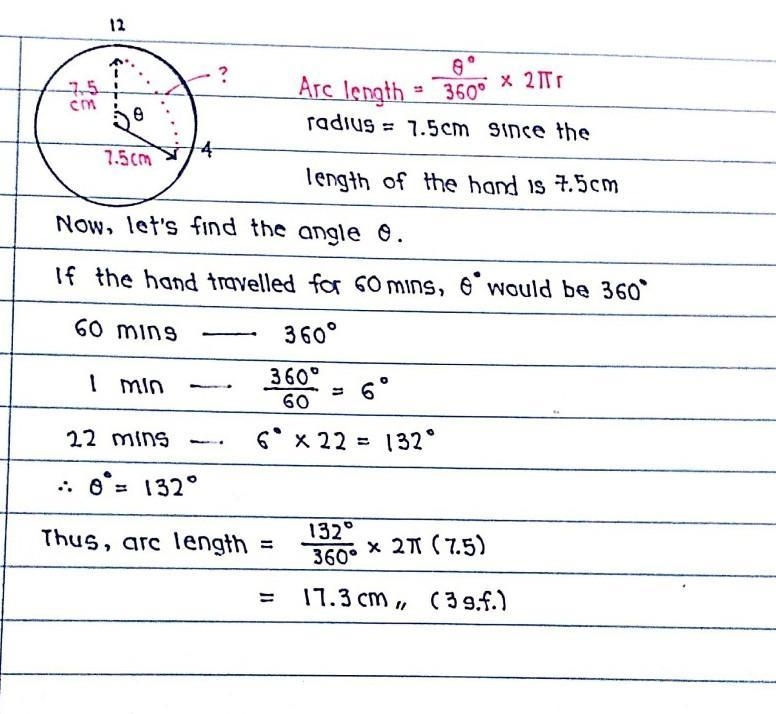 12
7.5
cm
θ
7.5cm
4
?
Arc length = θ°/360° × 2πr
radius = 7.5cm since the
length of the hand is 7.5cm
Now, let's find the angle θ.
If the hand travelled for 60 mins, θ° would be 360°
60 mins — 360°
1 min — 360°/60 = 6°
22 mins — 6° × 22 = 132°
∴ θ° = 132°
Thus, arc length = 132°/360° × 2π (7.5)
= 17.3 cm,, (3 s.f.)